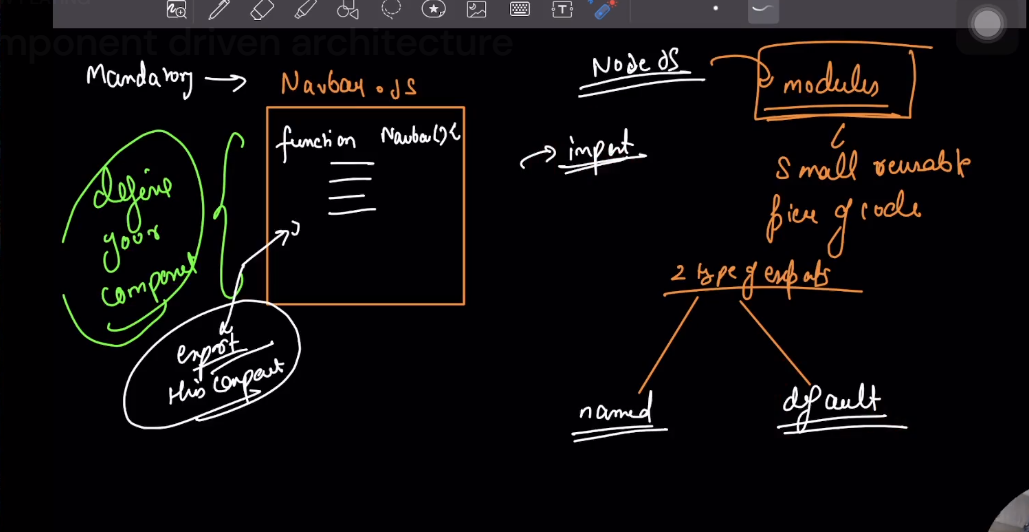 mponent driven architecture
Mandatory →
Navbar.JS
function Navbar() {
define
your
component
export
this component
Node JS
modules
import
small reusable
piece of code
2 type of exports
named
default